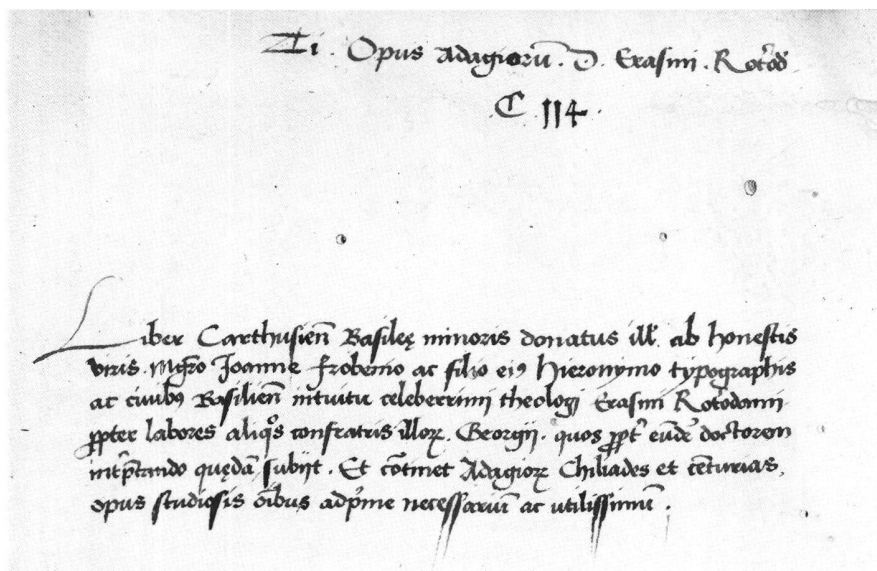 Ti. Opus Adagiorū. D. Erasmi. Rot'od
.C 114.
Liber Carthusien̄ Basileę minoris donatus ill'. ab honestis
viris. Mgr̄o Joanne frobenio ac filio eiꝰ Hieronymo typographis
ac ciuibꝰ Basilien̄ intuitu celeberrimi theologi Erasmi Rot'odami
ꝓpter labores aliq̄s confratris illoꝝ. Georgij. quos ꝓpt' eūdē doctorem
int'p̄tando quędā subijt. Et cōtinet Adagioꝝ Chiliades et cēturias,
opus studiosis oībus adp'me necessariū ac utilissimū.